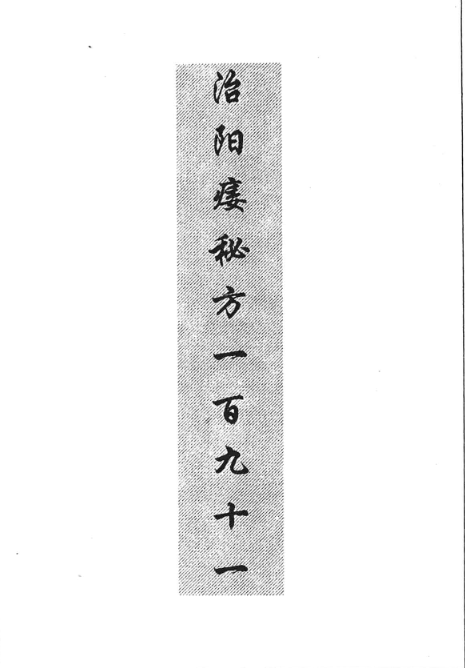 治阳痿秘方一百九十一